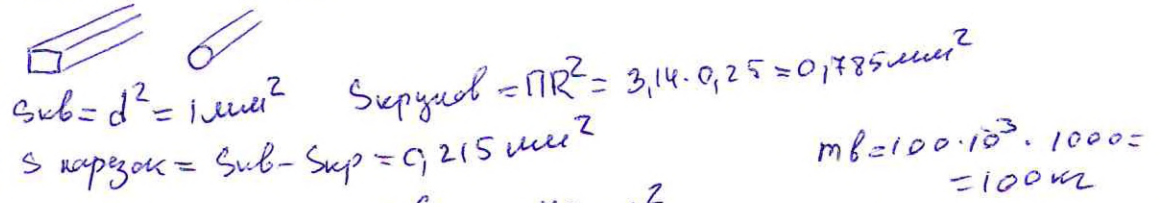 Sкв = d² = 1мм² Sкругов = ПR² = 3,14·0,25 = 0,785мм²
S нарезок = Sкв - Sкр = 0,215 мм²
mв = 100·10³·1000 =
= 100 кг